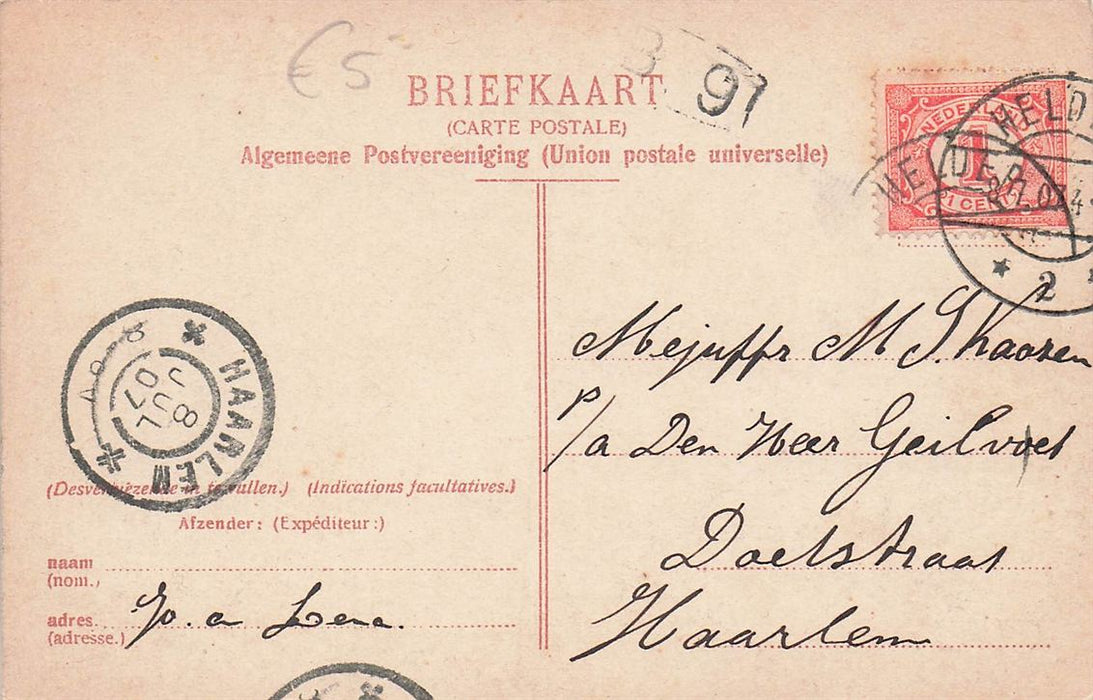 €5
3
91
BRIEFKAART
(CARTE POSTALE)
Algemeene Postvereeniging (Union postale universelle)
NEDERLAND
1
1 CENT
HELDER
HELD
2
HAARLEM
8 JUL 07
Mejuffr M
p/a Den Heer Geilvoet
Doelstraat
Haarlem
(Desverkiezende in te vullen.) (Indications facultatives.)
Afzender: (Expéditeur:)
naam
(nom.)
adres
(adresse.)
Jo. en Lena.